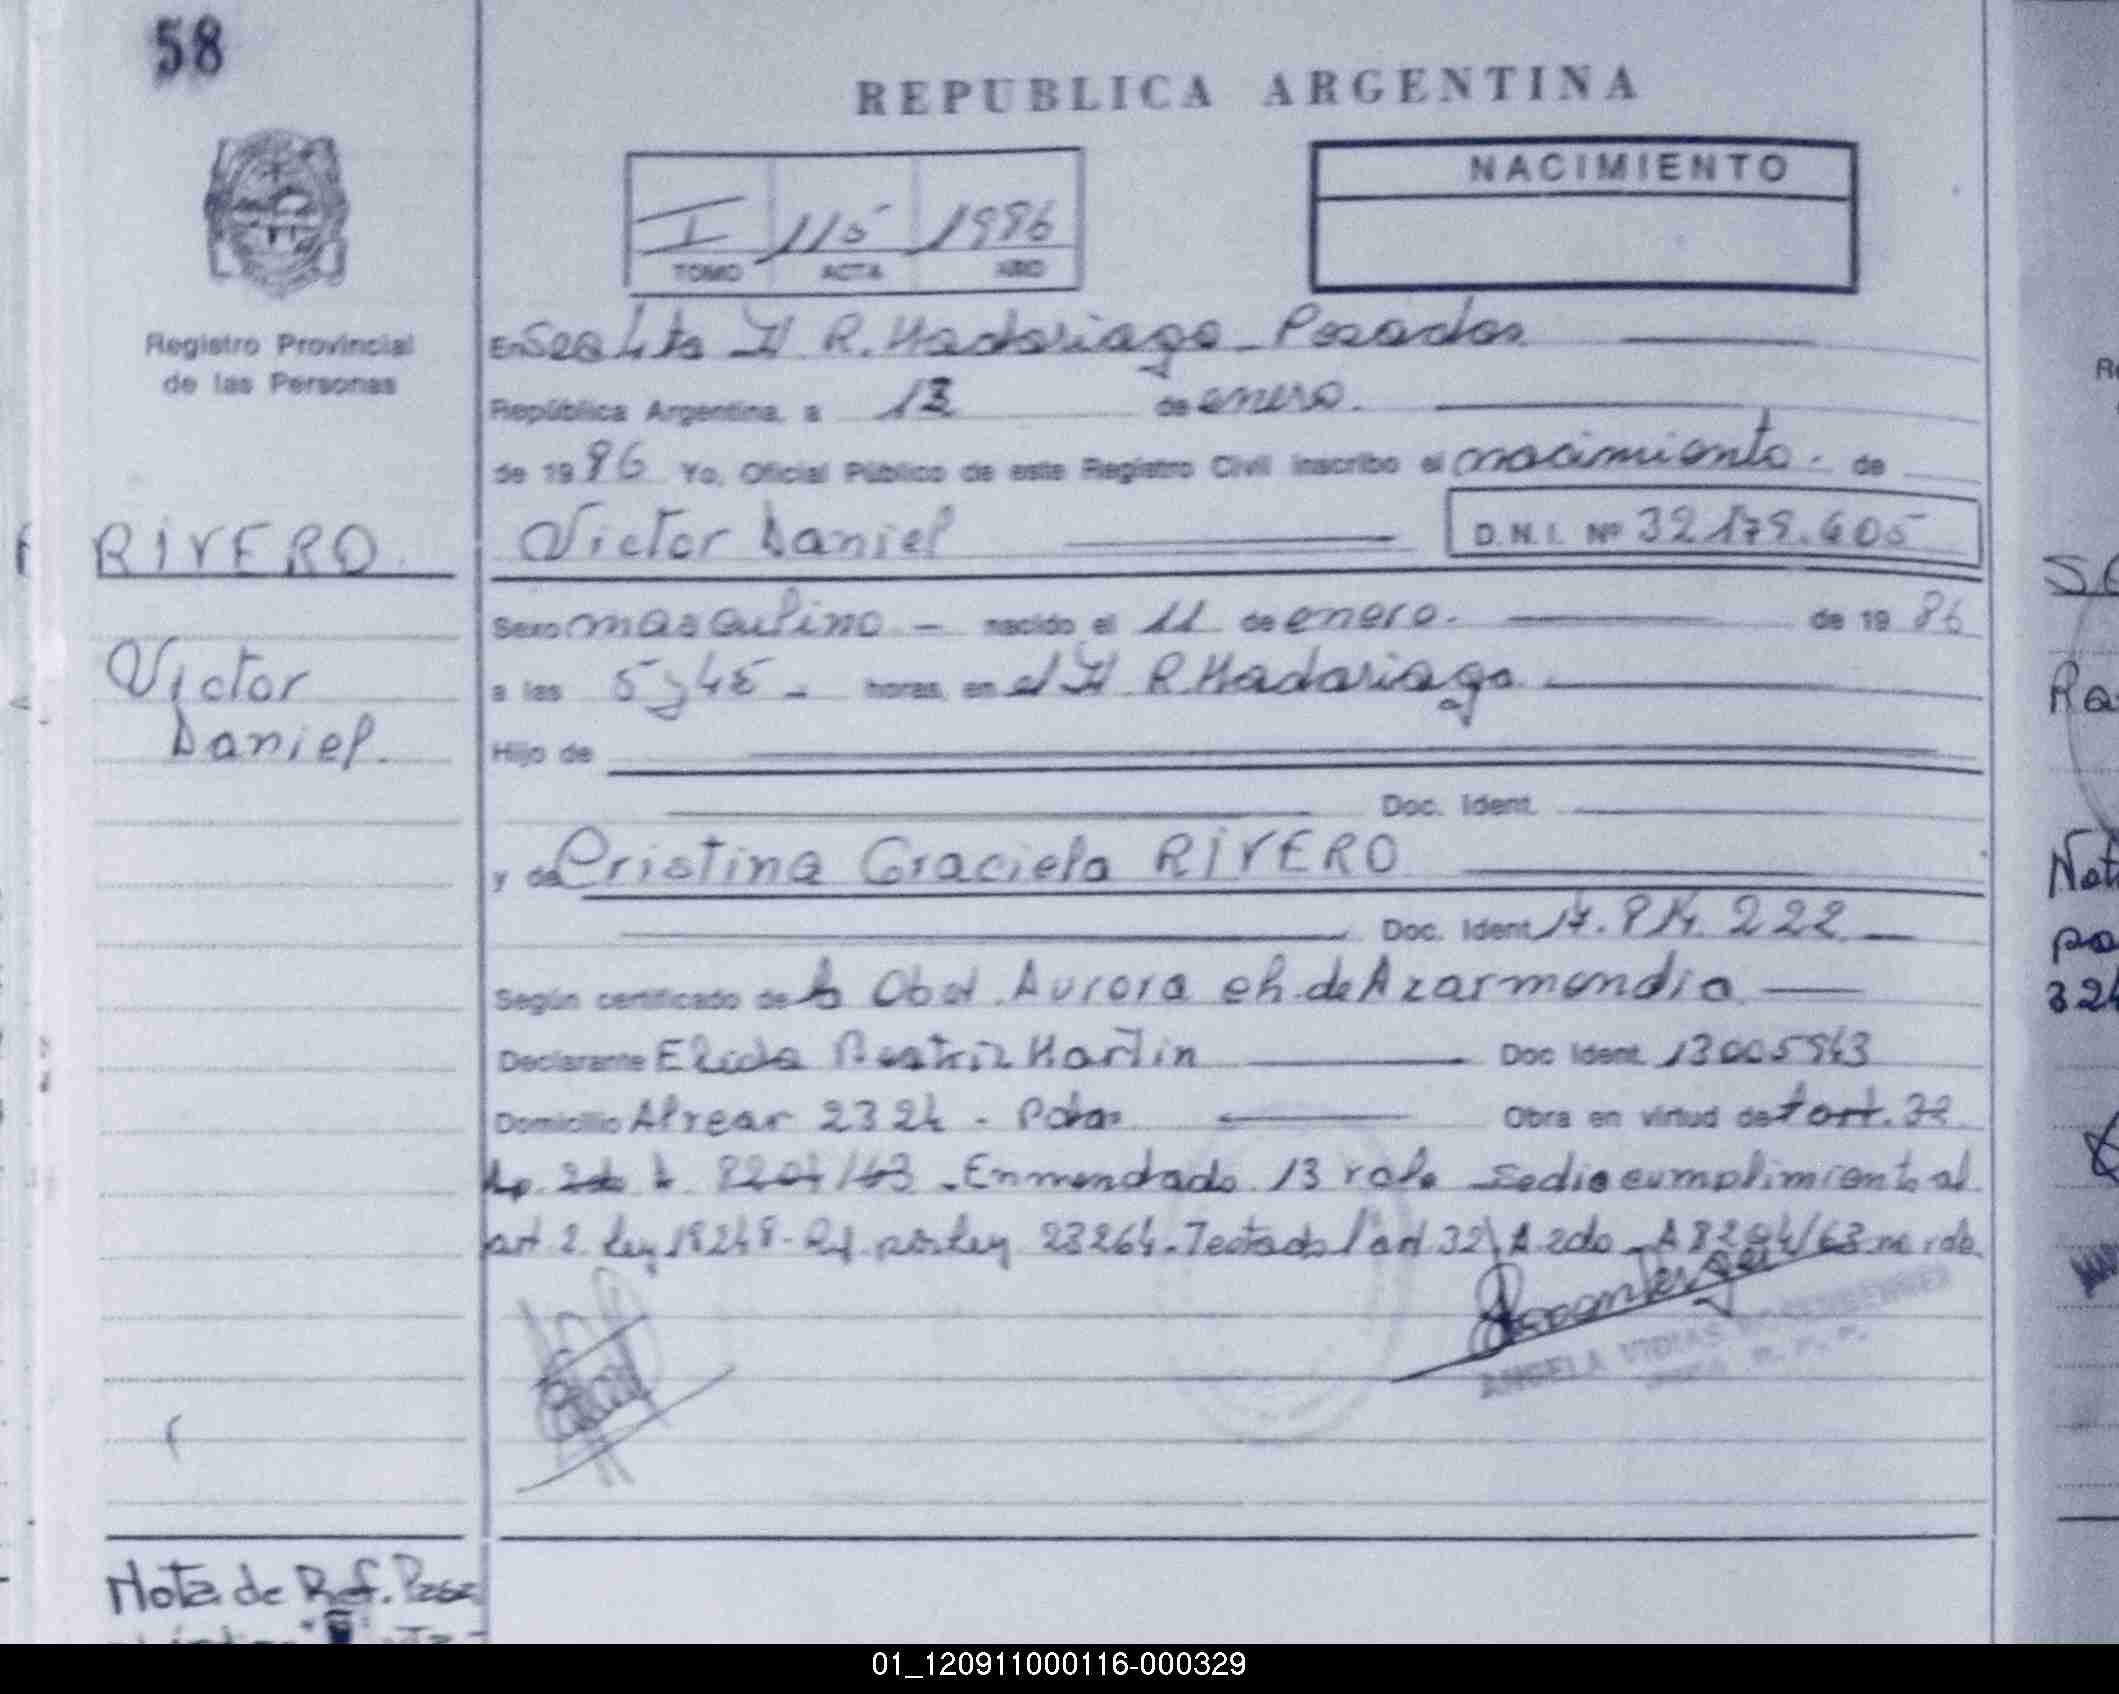 58
REPUBLICA ARGENTINA
NACIMIENTO
I 115 1996
TOMO ACTA AÑO
Registro Provincial
de las Personas
En Secc 4ta H R. Madariaga - Posadas
República Argentina, a 13 de enero.
de 19 86 Yo, Oficial Público de este Registro Civil inscribo el nacimiento. de
RIVERO
Victor Daniel D.N.I. Nº 32.179.605
Sexo masculino - nacido el 11 de enero. de 19 86
Victor
a las 5 y 45 - horas, en el H R. Madariaga
Daniel.
Hijo de
Doc. Ident.
y de Cristina Graciela RIVERO
Doc. Ident 17.814.222
Según certificado de la Obst. Aurora ch. de Azarmendia
Declarante Elida Beatriz Martin Doc Ident. 13005943
Domicilio Alvear 2324 - Pdas Obra en virtud de art. 32
Ap. 2do 8204/63 - Enmendado 13 vale - Se dio cumplimiento al
art 2. Ley 18248 - por Ley 23264 - Testado / art 32 A 2do - 8204/63 no vale
ANGELA
R. P. P.
Nota de Ref.
01_120911000116-000329